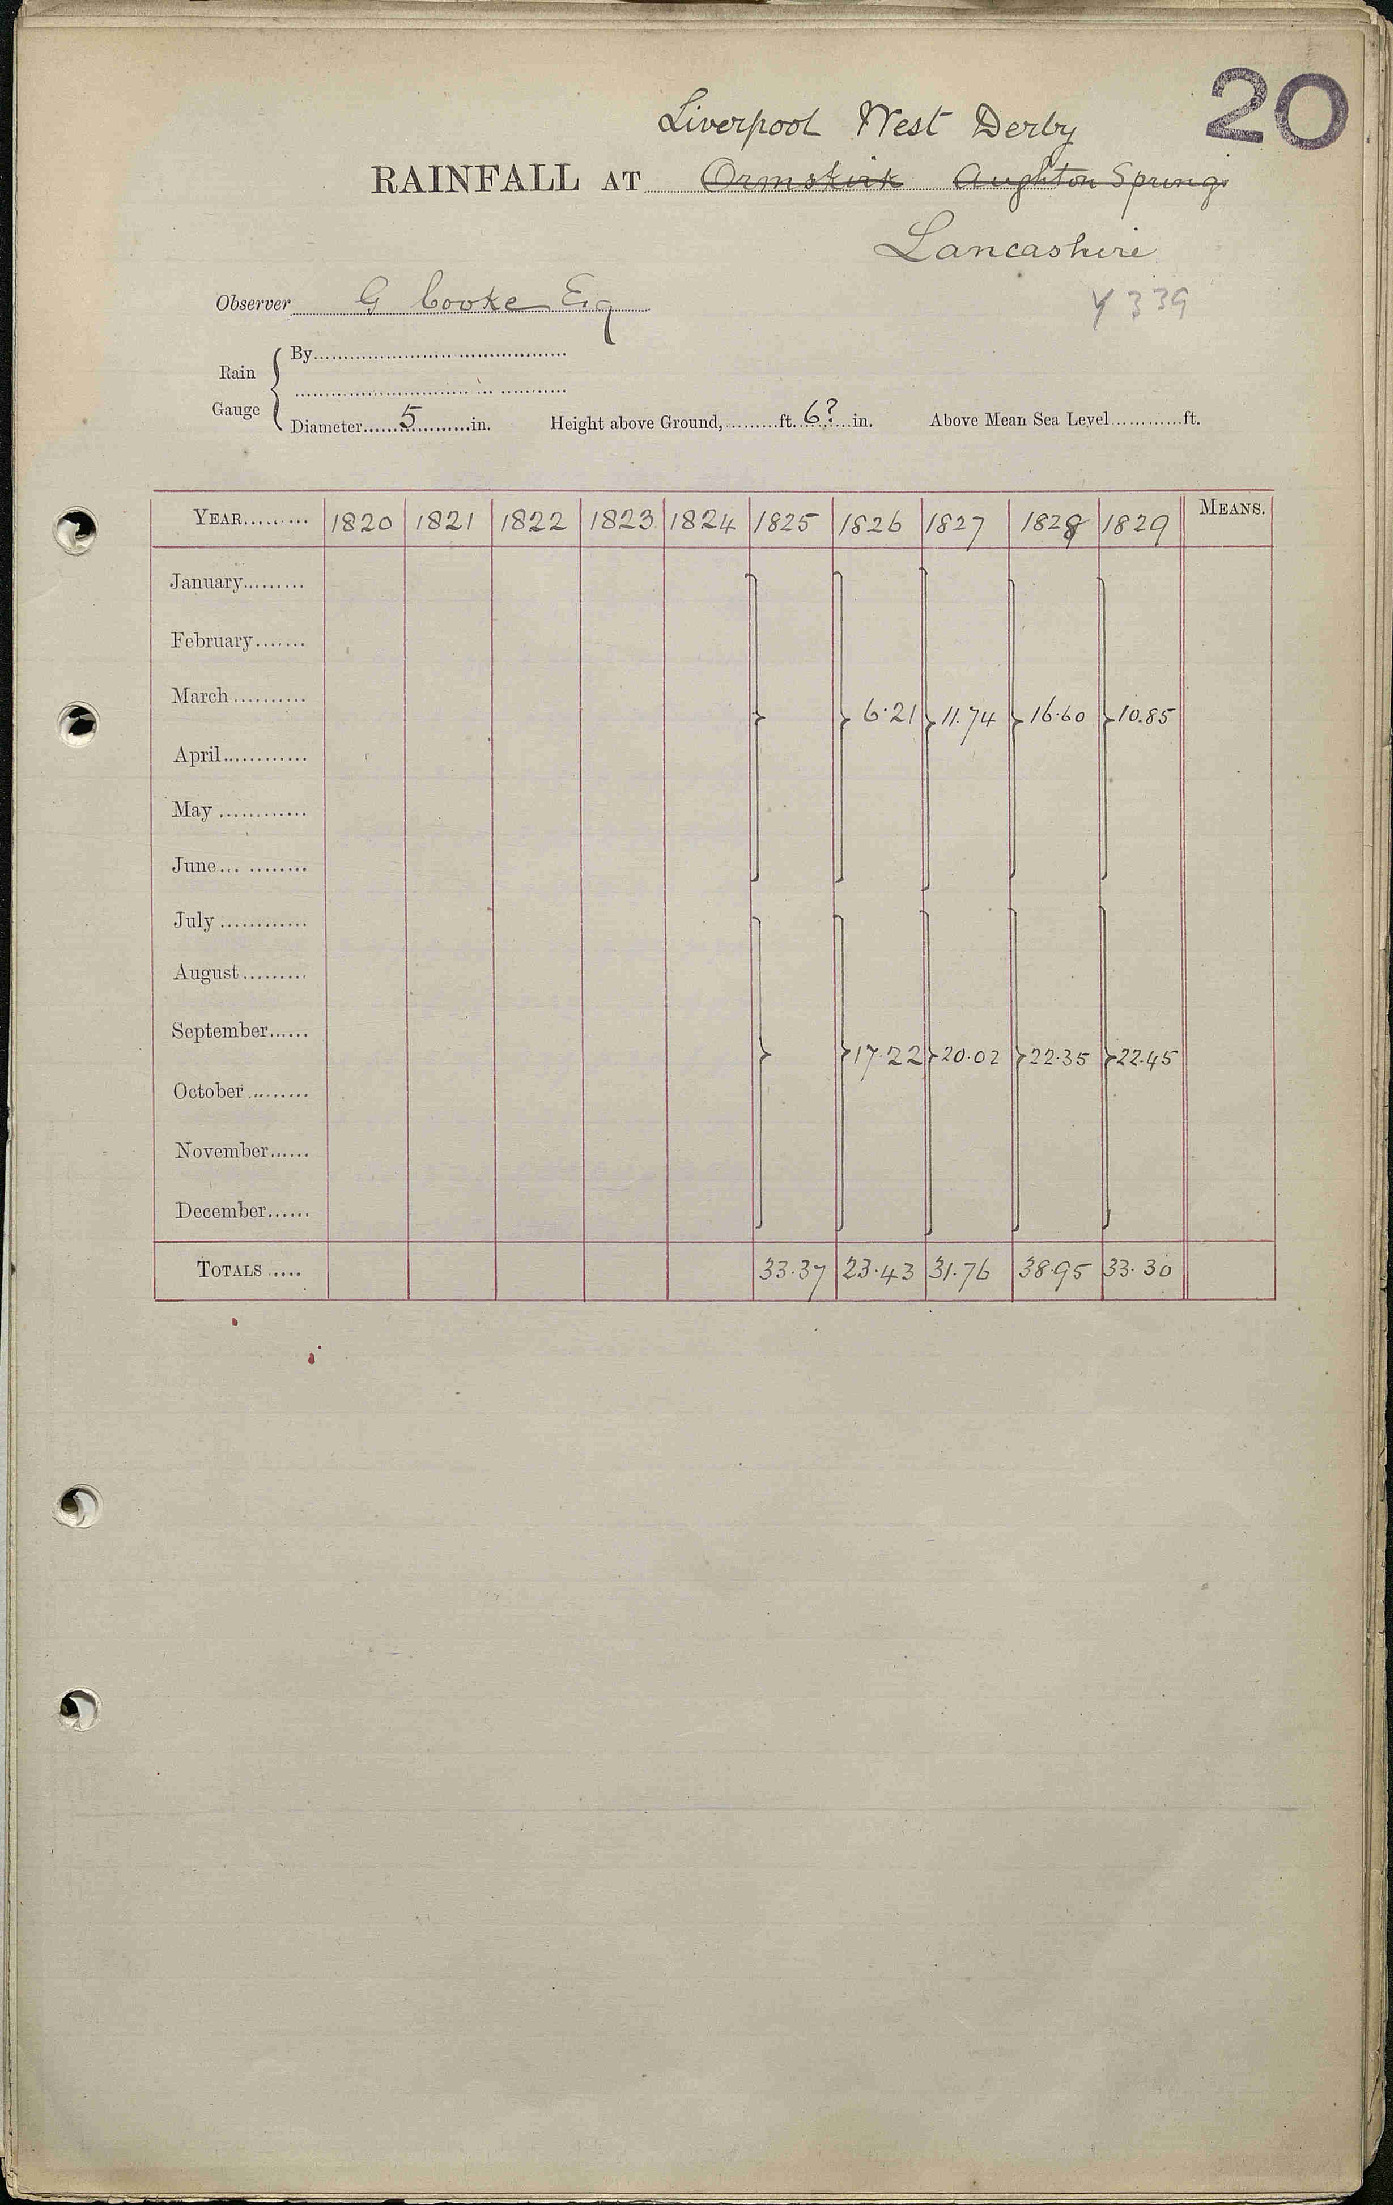 20
Liverpool West Derby
RAINFALL AT Ormskirk Aughton Springs
Lancashire
Observer G Cooke Esq
Y 339
Rain Gauge { By
Diameter 5 in. Height above Ground, ft. 6? in. Above Mean Sea Level ft.
YEAR 1820 1821 1822 1823 1824 1825 1826 1827 1828 1829 MEANS.
January
February
March
6.21 11.74 16.60 10.85
April
May
June
July
August
September
17.22 20.02 22.35 22.45
October
November
December
TOTALS 33.37 23.43 31.76 38.95 33.30